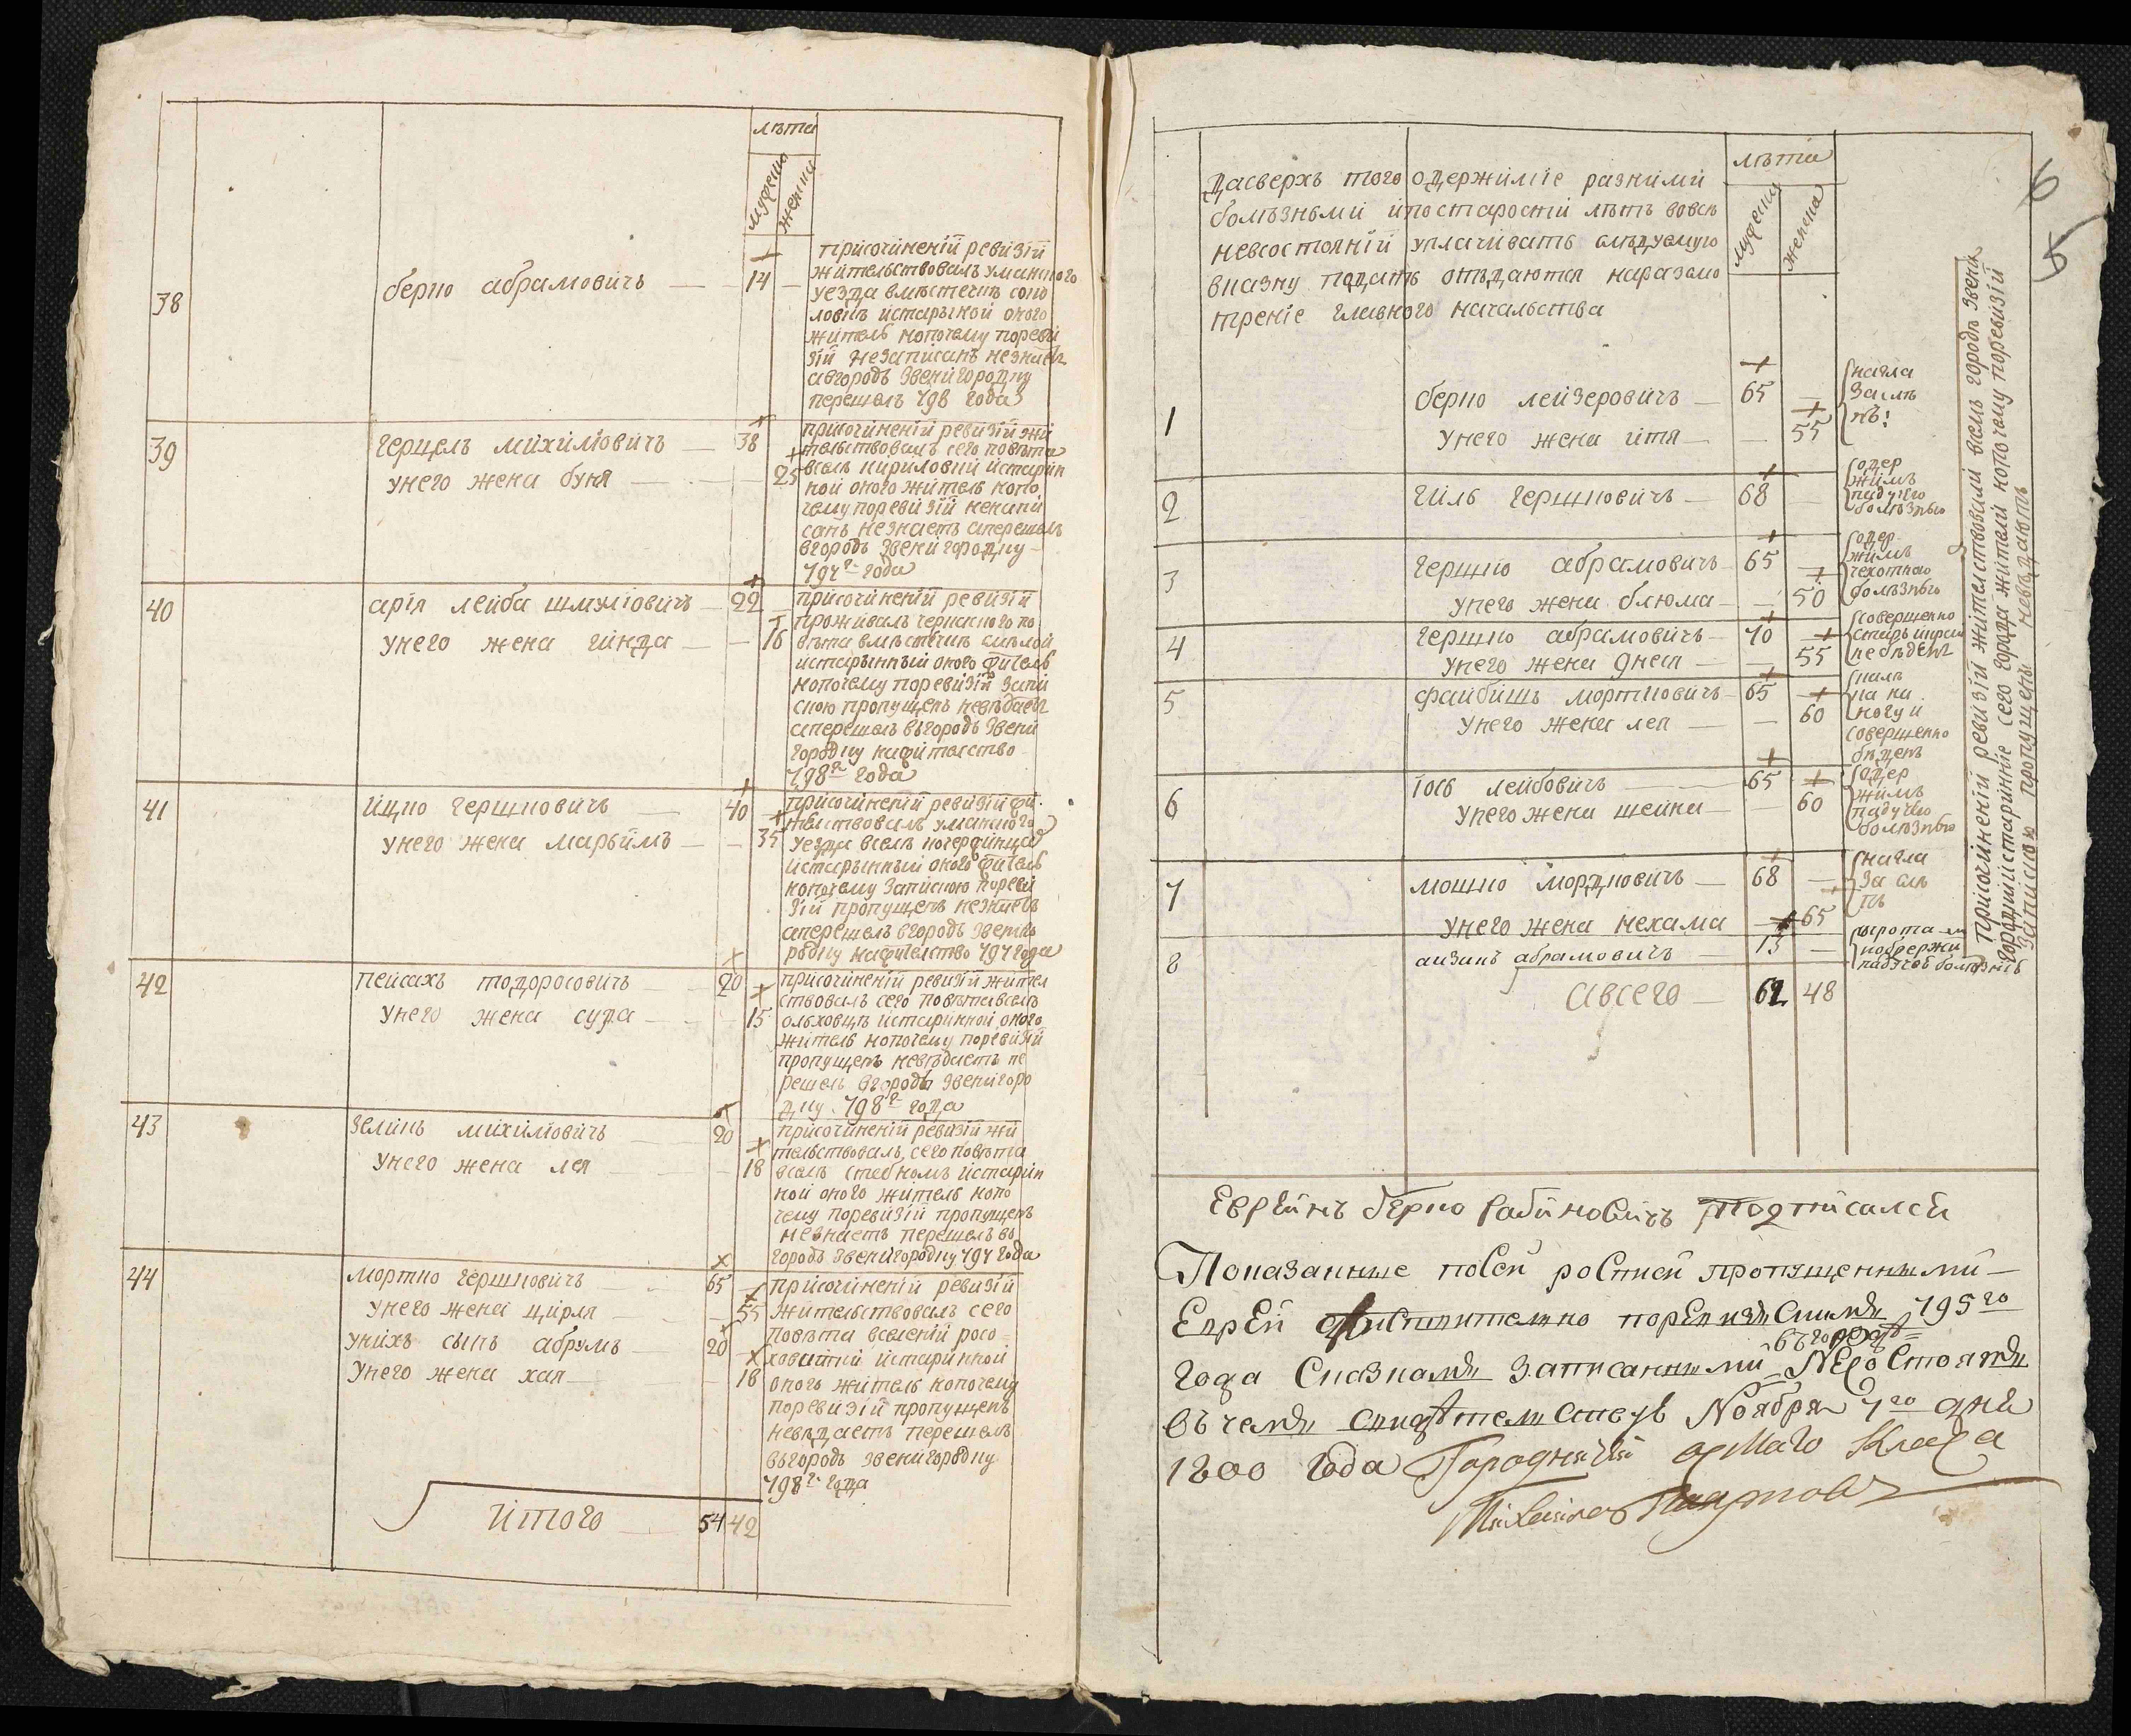 лѣта
мужеска
женска
38
берко абрамовичъ
14
присочиненiй ревизiй
жительствовалъ уманского
уезда вместечкѣ соко
ловкѣ истарыной оного
житель нопочему пореви
зiй незаписанъ незнаетъ
авгородъ звенигородку
перешолъ 798 года
39
герцель михилiовичъ
38
унего жена буня
25
присочиненiй ревизiй жи
тельствовалъ сего повѣта
вселѣ кириловки истарин
ной оного житель нопо
чему поревизiй ненапи
санъ незнаетъ аперешолъ
вгородъ звенигородку
797г года
40
арiя лейба шмулiовичъ
22
унего жена гинда
16
присочиненiй ревизiй
проживалъ черкаского по
вѣта вмѣстечкѣ смѣлой
истарынный оного житель
нопочему поревизiй запи
скою пропущенъ невѣдаетъ
аперешолъ вгородъ звени
городку нажителство
798г года
41
ицко гершковичъ
40
унего жена марьямъ
35
присочиненiй ревизiй жи
тельствовалъ уманского
уезда вселѣ
истарынный оного житель
нопочему запискою пореви
зiй пропущенъ незнаетъ
аперешолъ вгородъ звениго
родку нажителство 797 года
42
пейсахъ тодоросовичъ
20
унего жена сура
15
присочиненiй ревизiй жител
ствовалъ сего повѣта вселѣ
ольховцѣ истаринной оного
житель нопочему поревизiй
пропущенъ невѣдаетъ пе
решолъ вгородъ звенигоро
дку 798г года
43
зеликъ михилiовичъ
20
унего жена лея
18
присочиненiй ревизiй жи
тельствовалъ сего повѣта
вселѣ стебномъ истарин
ной оного житель нопо
чему поревизiй пропущенъ
незнаетъ перешолъ во
городъ звенигородку 797 года
44
мортко гершковичъ
65
унего жена цирля
55
унихъ сынъ абрумъ
20
унего жена хая
18
присочиненiй ревизiй
жительствовалъ сего
повѣта вселенiй росо
ховатки истаринной
оного житель нопочему
поревизiй пропущенъ
невѣдаетъ перешолъ
вьгородъ звенигородку
798г года
итого
54 42
6
5
дасверхъ того одержимiе разними
болѣзньми ипостаростiй лѣтъ вовсѣ
невсостоянiй уплачивать слѣдуемую
вказну подать отъдаются наразсмо
тренiе главного начальства
лѣта
мужеска
женска
1
берко лейзеровичъ
65
унего жена итя
55
нагла
за слѣ
пъ:
2
гиль гершковичъ
68
одер
жимъ
падучею
болѣзнью
3
гершко абрамовичъ
65
унего жена блюма
50
одер
жимъ
чехоткою
болѣзнью
4
гершко абрамовичъ
70
унего жена двея
55
совершенно
старъ икрай
не бѣденъ
5
файбишъ мортковичъ
65
унего жена лея
60
калѣ
ка на
ногу и
совершенно
бѣденъ
6
iось лейбовичъ
65
унего жена шейна
60
одер
жимъ
падучею
болѣзнью
7
мошко мордковичъ
68
унего жена нехама
65
нагла
за слѣ
пъ
8
аизикъ абрамовичъ
13
сырота
падучою болѣзнiю
авсего
62 48
присочиненiй ревизiй жителствовали всемъ городѣ звени
городки истаринiе сего города жители нопочему поревизiй
запискою пропущены невѣдаютъ
Еврейнъ берко рабиновичъ подписалси
Показанные посей росписи пропущенными
Евреи действително поревизскимъ 795го
вьгородѣ
года сказкамъ записанными Неростоятъ
въ чемъ свидѣтелствую Ноября 7го дня
1800 года Городничий 8маго класа